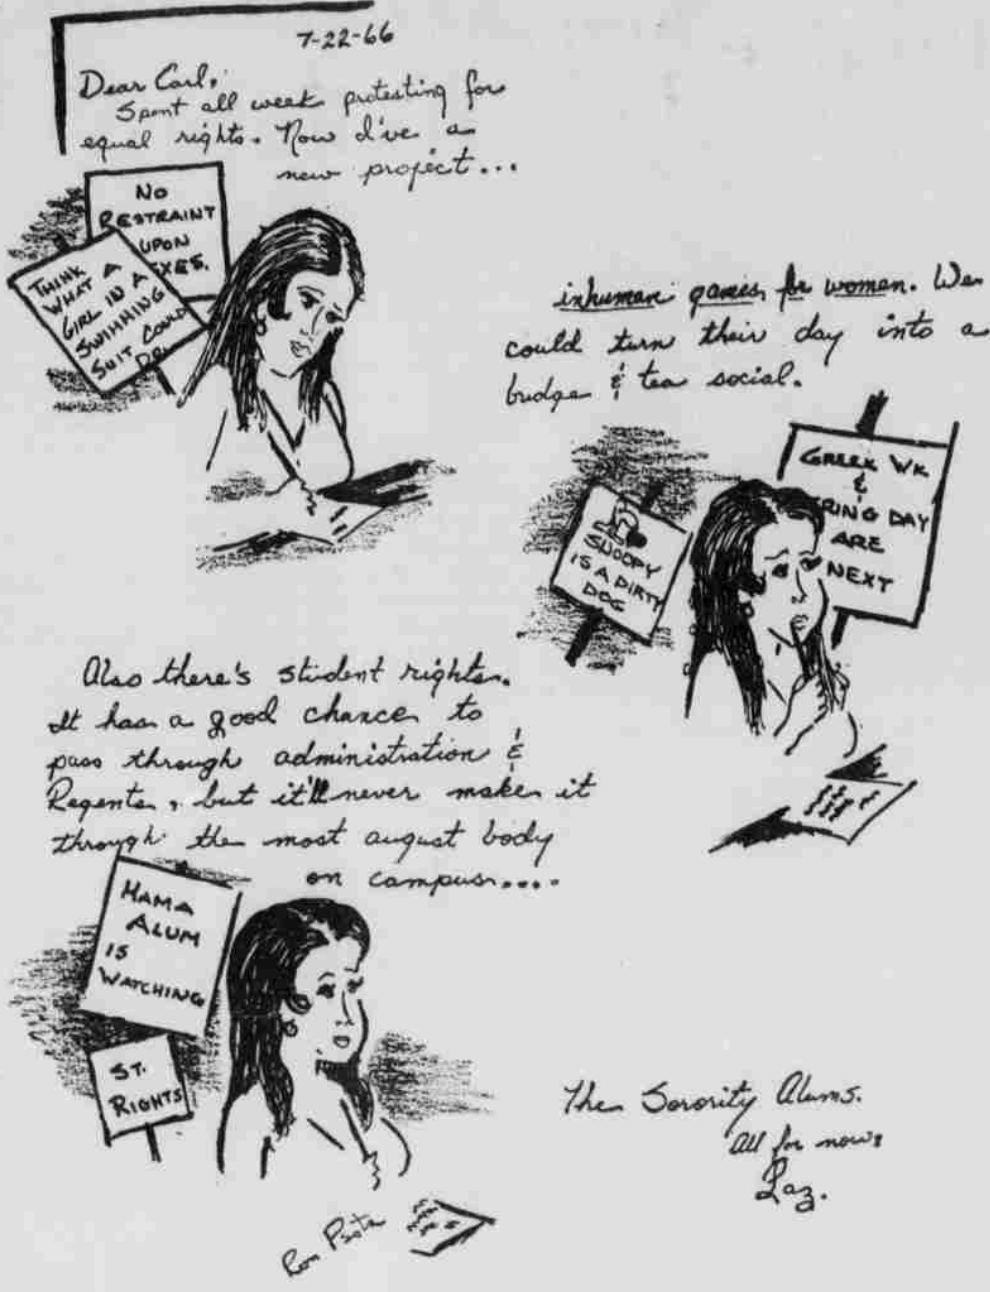 7-22-66
Dear Carl,
Spent all week protesting for
equal rights. Now I've a
new project...
NO
RESTRAINT
UPON
XES.
THINK
WHAT A
GIRL IN A
SWIMMING
SUIT COULD
DO.
inhuman games for women. We
could turn their day into a
bridge & tea social.
GREEK WK
&
RING DAY
ARE
NEXT
SNOOPY
IS A DIRTY
DOG
Also there's student rights.
It has a good chance to
pass through administration &
Regents, but it'll never make it
through the most august body
on campus....
MAMA
ALUM
IS
WATCHING
ST.
RIGHTS
The Sorority Alums.
All for now,
Laz.
Ron Psota